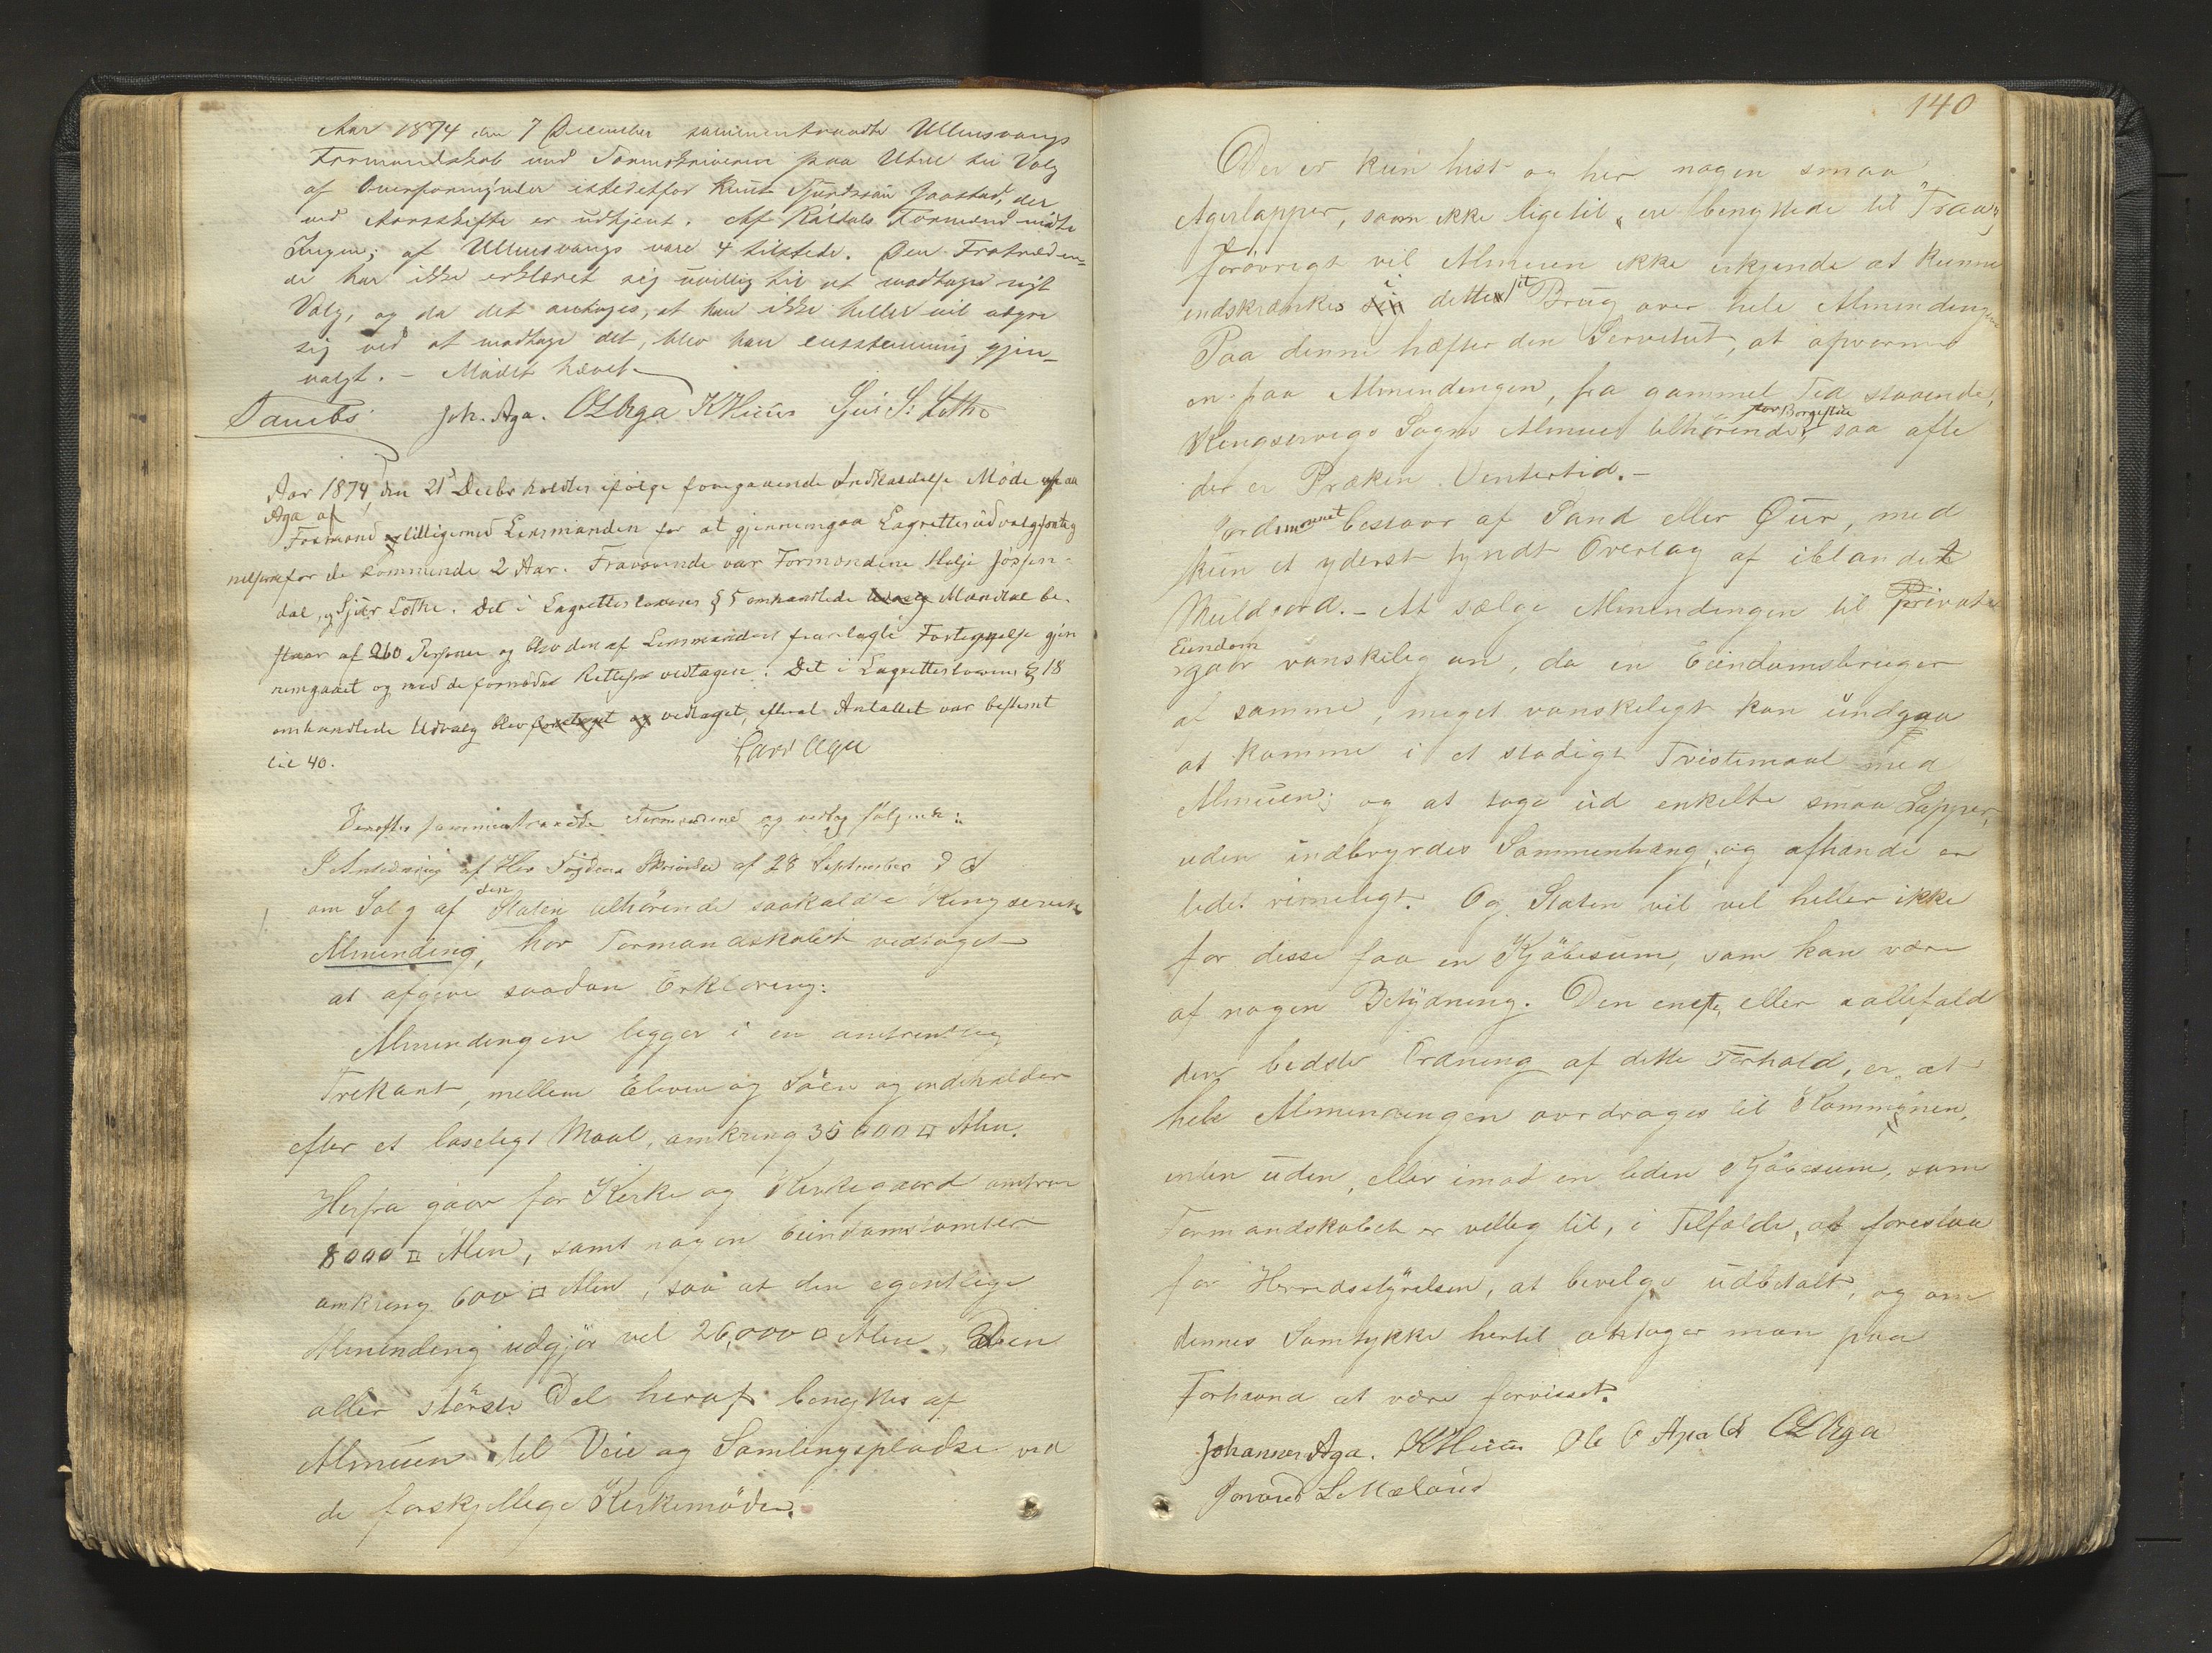 Aar 1874 den 7 December sammentraadte Ullensvangs
Formandskab med Sorenskriveren paa Utne til Valg
af Overformynder istedetfor Knut Sjurdssøn Jaastad, der
ved Aarsskifte er udtjent. Af Røldals Formænd mødte
Ingen; af Ullensvangs vare 4 tilstede. Den Fratræden-
de har ikke erklæret sig uvillig til at modtage nyt
Valg, og da det antages, at han ikke heller vil
sig ved at modtage det, blev han eenstemmig gjen-
valgt. – Mødet hævet.
Joh. Aga. O L Aga K Huus Sjur S: Lothe
Aar 1874, den 21 Decbr holdtes ifølge foregaaende Indkaldelse Møde paa
Aga af
Formænd tilligemed Lensmanden for at gjennemgaa Lagrettesudvalgsforteg
nelserne for de kommende 2 Aar. Fraværende var Formændene Helje Jøssen-
dal, og Sjur Lothe. Det i Lagretteslovens § 5 omhandlede Udvalg Mandtal be-
staar af 260 Personer og blev den af Lensmanden fremlagte Fortegnelse gjen
nemgaaet og med de fornødne Rettelser vedtagen. Det i Lagretteslovens § 18
omhandlede Udvalg blev foretaget og vedtaget, efterat Antallet var bestemt
til 40.
Lars Aga
Derefter sammentraadte Formændene og vedtog følgende:
I Anledning af Hr. Fogdens Skrivelse af 28 September d A
den
om Salg af Staten tilhørende saakaldte Kingservik
Almending, har Formandskabet vedtaget
at afgive saadan Erklæring:
Almendingen ligger i en omtrentlig
Trekant, mellem Elven og Søen og indeholder
efter et løseligt Maal, omkring 35 000 □ Alen.
Herfra gaar for Kirke og Kirkegaard omtren
8000 □ Alen, samt nogen Eiendomstomter
omkring 600 □ Alen, saa at den egentlige
Almending udgjør vel 26,000 □ Alen. Den
aller største Del heraf benyttes af
Almuen til Veie og Samlingspladse ved
de forskjellige Kirkemøder.
140
Der er kun hist og her nogen smaa
Agerlapper, som ikke ligetil ere benyttede til
forøvrigt vil Almuen ikke erkjende at kunne
i sit
indskrænkes sig dette Brug over hele Almendingen
Paa denne hæfter den Servetut, at opvarme
en paa Almendingen, fra gammel Tid staaende,
for Borgestue
Kingservigs Sogns Almue tilhørende, saa ofte
der er Præken Ventertid. –
Jordsmonnet bestaar af Sand eller Øur, med
kun et yderst tyndt Overlag af iblandet
Muldjord. – At sælge Almendingen til Privat
Eiendom
gaar vanskelig an, da en Eiendomsbruger
af samme, meget vanskeligt kan undgaa
at komme i et stadigt Tvistemaal med
Almuen; og at tage ud enkelte smaa Lapper,
uden indbyrdes Sammenhæng, og afhænde er
lidet rimeligt. Og Staten vil vel heller ikke
for disse faa en Kjøbesum, som kan være
af nogen Betydning. Den eneste, eller iallefald
den bedste Ordning af dette Forhold, er, at
hele Almendingen overdrages til Kommunen,
enten uden, eller imod en liden Kjøbesum, som
Formandskabet er villig til, i Tilfælde, at foreslaa
for Herredsstyrelsen, at bevilge udbetalt, og om
dennes Samtykke hertil antager man paa
Forhaand at være forvisset.
Johannes Aga. K Huus Ole O Apald O L Aga
L Mæland